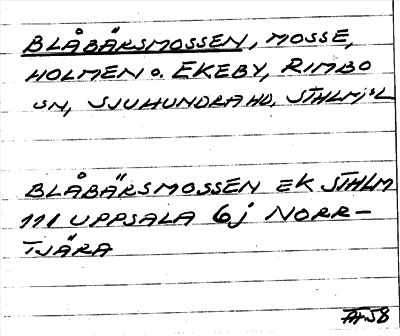 BLÅBÄRSMOSSEN, MOSSE,
HOLMEN o. EKEBY, RIMBO
SN, SJUHUNDRA HD, STHLMS L
BLÅBÄRSMOSSEN EK STHLM
111 UPPSALA 6j NORR-
TJÄRA